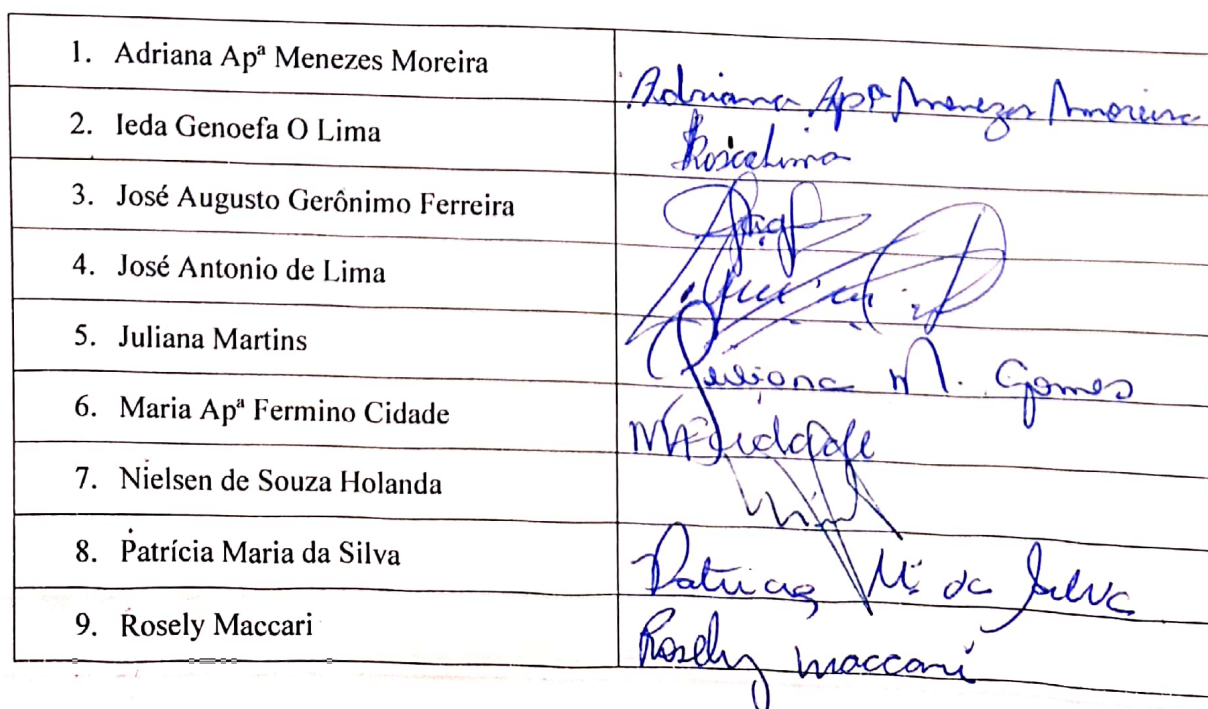 1. Adriana Apª Menezes Moreira
Adriana Apª Menezes Moreira
2. Ieda Genoefa O Lima
3. José Augusto Gerônimo Ferreira
4. José Antonio de Lima
5. Juliana Martins
Juliana M. Gomes
6. Maria Apª Fermino Cidade
MAFCidade
7. Nielsen de Souza Holanda
8. Patrícia Maria da Silva
Patricia Mª da Silva
9. Rosely Maccari
Rosely Maccari